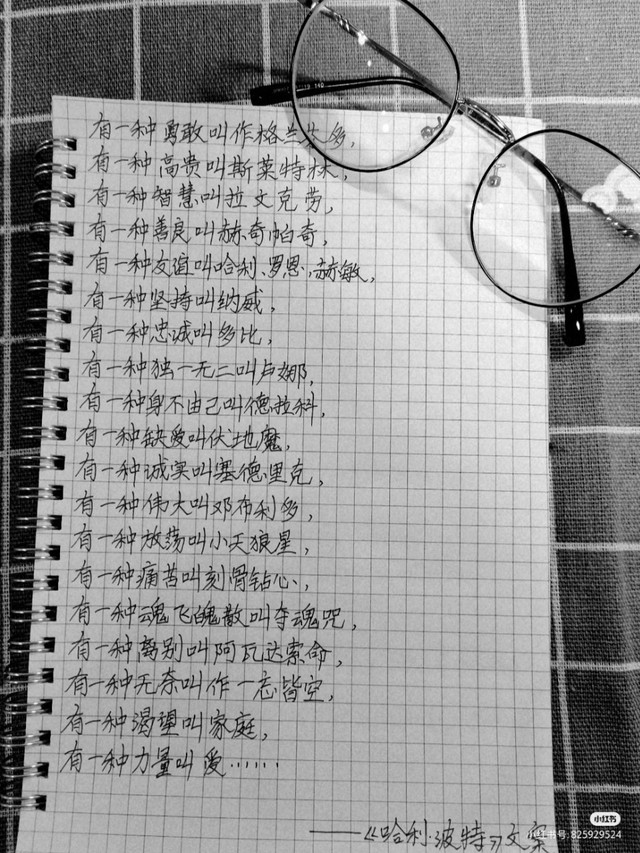 有一种勇敢叫作格兰芬多，
有一种高贵叫斯莱特林，
有一种智慧叫拉文克劳，
有一种善良叫赫奇帕奇，
有一种友谊叫哈利、罗恩、赫敏，
有一种坚持叫纳威，
有一种忠诚叫多比，
有一种独一无二叫卢娜，
有一种身不由己叫德拉科，
有一种缺爱叫伏地魔，
有一种诚实叫塞德里克，
有一种伟大叫邓布利多，
有一种放荡叫小天狼星，
有一种痛苦叫刻骨钻心，
有一种魂飞魄散叫夺魂咒，
有一种离别叫阿瓦达索命，
有一种无奈叫作一忘皆空，
有一种渴望叫家庭，
有一种力量叫爱……
——《哈利·波特》文案
小红书
小红书号:825929524